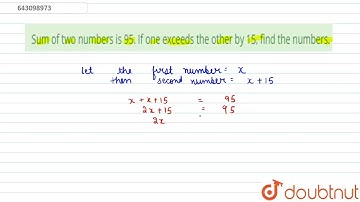 643098973
Sum of two numbers is 95. If one exceeds the other by 15, find the numbers.
let the first number = x
then second number = x + 15
x + x + 15 = 95
2x + 15 = 95
2x
doubtnut